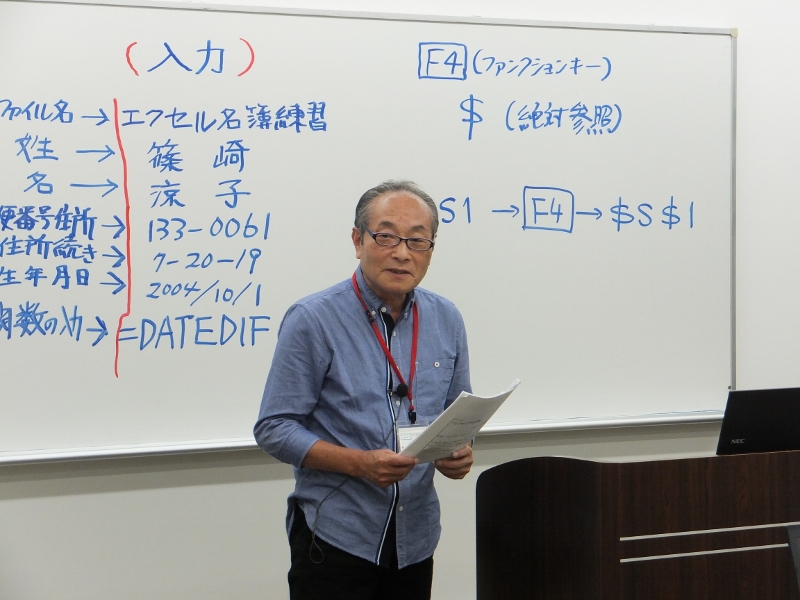 (入力)
ファイル名 → エクセル名簿練習
姓 → 篠崎
名 → 涼子
便番号住所 → 133-0061
住所続き → 7-20-19
生年月日 → 2004/10/1
関数の入力 → =DATEDIF
F4 (ファンクションキー)
$ (絶対参照)
S1 → F4 → $S$1
NEC